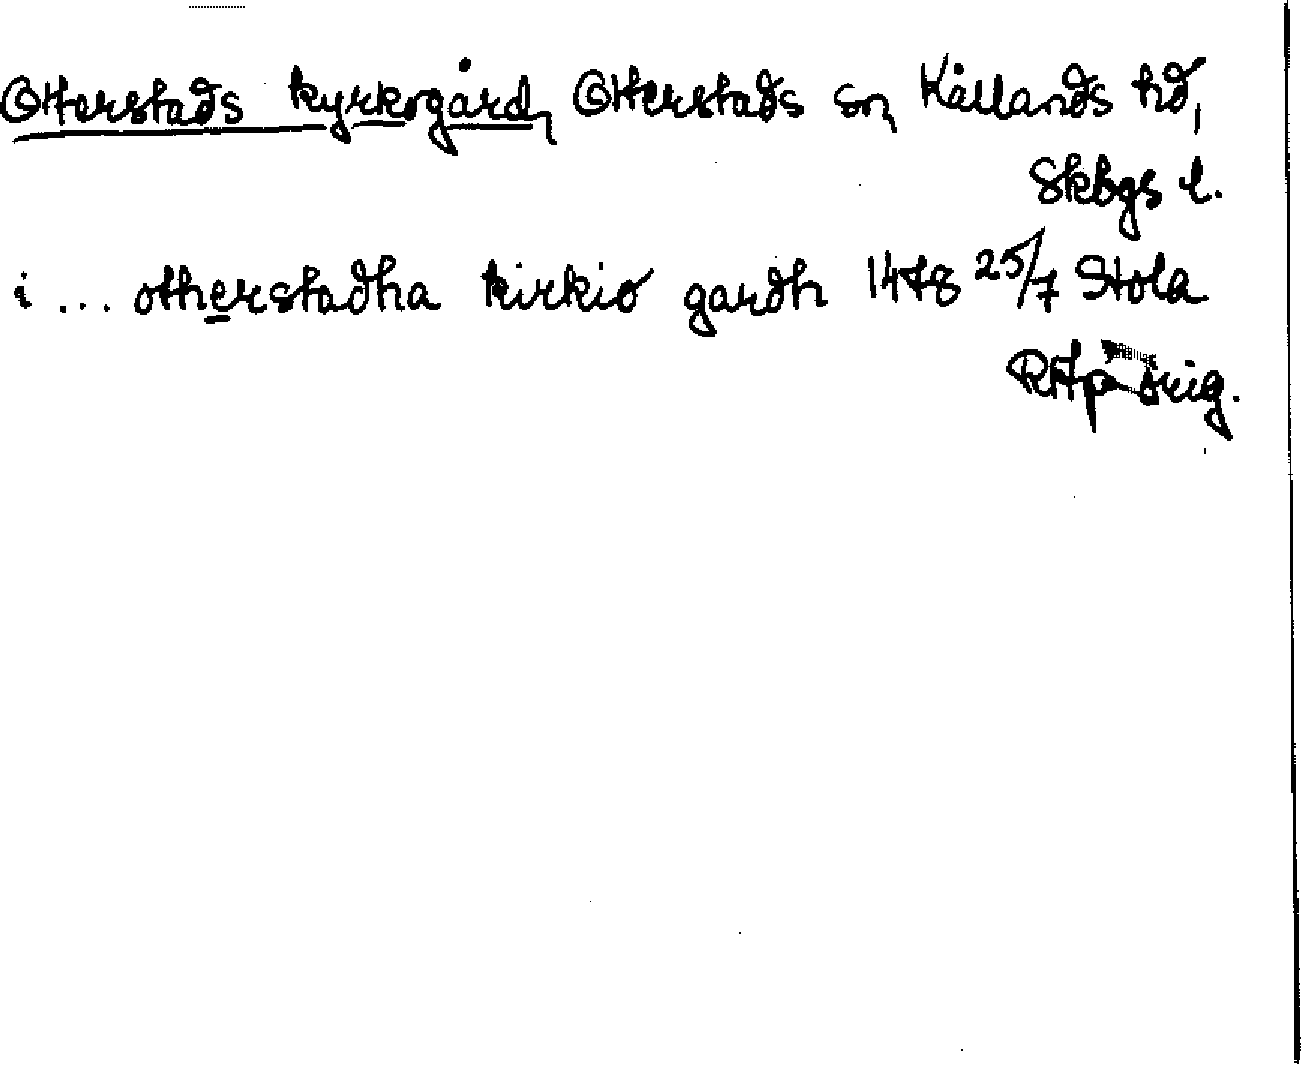 Otterstads kyrkogård, Otterstads sn, Kållands hd,
Skbgs l.
i ... otherstadha kirkio gardh 1478 25/7 Stola
RAp orig.